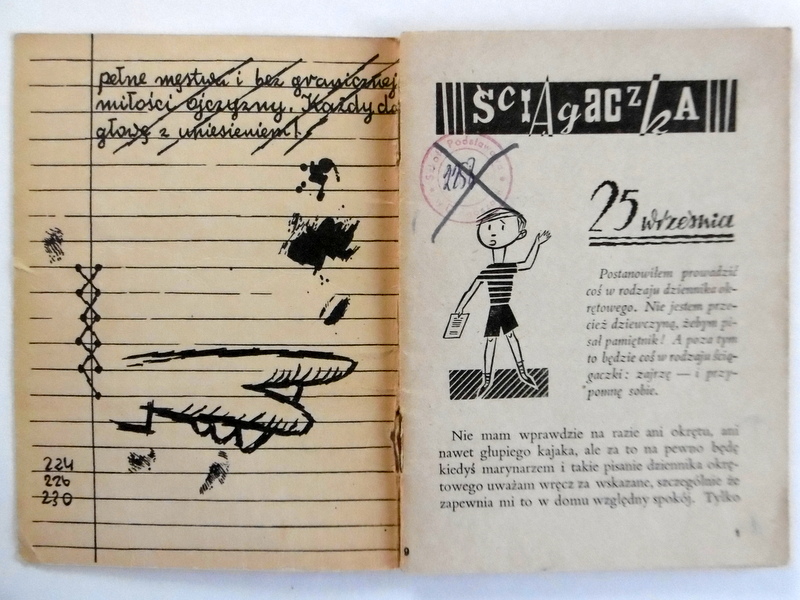 pełne męstwa i bez granicznej
miłości ojczyzny. Każdy do
głowę z uniesieniem!
224
226
230
9
ŚCIĄgaczkA
Szkoła Podstawowa
25 września
Postanowiłem prowadzić
coś w rodzaju dziennika ok-
rętowego. Nie jestem prze-
cież dziewczyną, żebym pi-
sał pamiętnik! A poza tym
to będzie coś w rodzaju ścią-
gaczki: zajrzę — i przy-
pomnę sobie.
Nie mam wprawdzie na razie ani okrętu, ani
nawet głupiego kajaka, ale za to na pewno będę
kiedyś marynarzem i takie pisanie dziennika okrę-
towego uważam wręcz za wskazane, szczególnie że
zapewnia mi to w domu względny spokój. Tylko